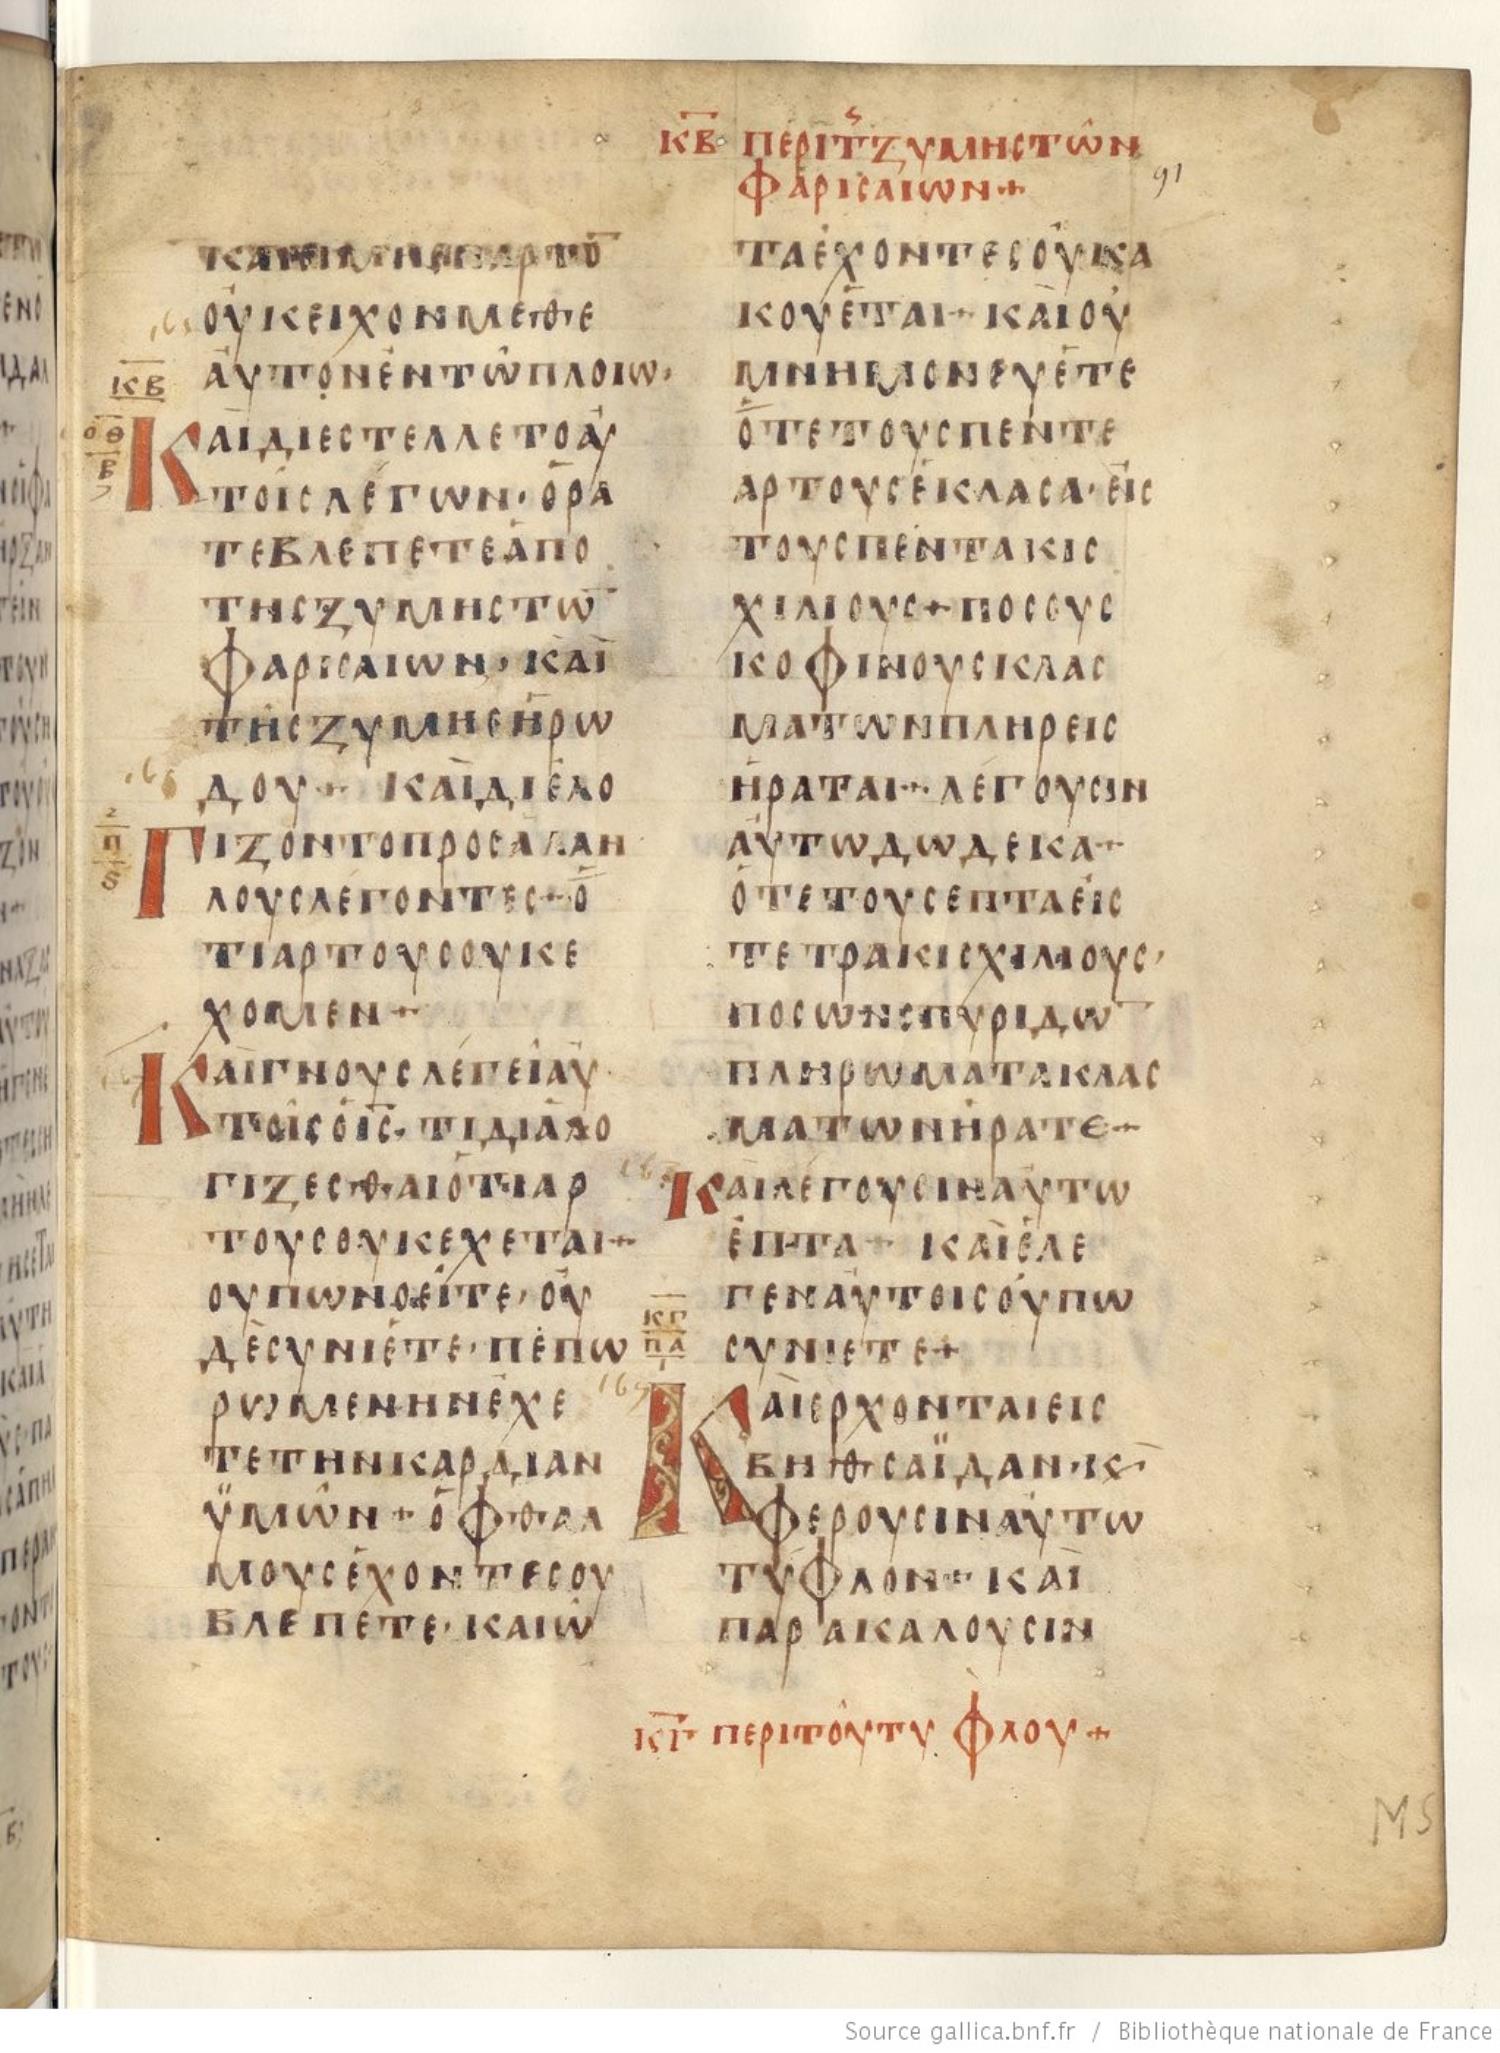 ΚΒ ΠΕΡΙΤΖΥΜΗΣΤΩΝ
ΦΑΡΙΣΑΙΩΝ+
91
ΟΥΚΕΙΧΟΝΜΕΘΕ
ΑΥΤΟΝΕΝΤΩΠΛΟΙΩ·
ΚΒ
ΟΘ
Β
ΚΑΙΔΙΕΣΤΕΛΛΕΤΟΑΥ
ΤΟΙΣΛΕΓΩΝ·ΟΡΑ
ΤΕΒΛΕΠΕΤΕΑΠΟ
ΤΗΣΖΥΜΗΣΤΩ̅
ΦΑΡΙΣΑΙΩΝ·ΚΑΙ
ΤΗΣΖΥΜΗΣΗΡΩ
ΔΟΥ+ ΚΑΙΔΙΕΛΟ
Π
ΓΙΖΟΝΤΟΠΡΟΣΑΛΛΗ
ΛΟΥΣΛΕΓΟΝΤΕΣ+Ο
ΤΙΑΡΤΟΥΣΟΥΚΕ
ΧΟΜΕΝ+
ΚΑΙΓΝΟΥΣΛΕΓΕΙΑΥ
ΤΟΙΣΟΙ̅Σ̅·ΤΙΔΙΑΛΟ
ΓΙΖΕΣΘΑΙΟΤΙΑΡ
ΤΟΥΣΟΥΚΕΧΕΤΑΙ+
ΟΥΠΩΝΟΕΙΤΕ·ΟΥ
ΔΕΣΥΝΙΕΤΕ·ΠΕΠΩ
ΡΩΜΕΝΗΝΕΧΕ
ΤΕΤΗΝΚΑΡΔΙΑΝ
ΫΜΩΝ+ΟΦΘΑΛ
ΜΟΥΣΕΧΟΝΤΕΣΟΥ
ΒΛΕΠΕΤΕ·ΚΑΙΩ
ΤΑΕΧΟΝΤΕΣΟΥΚΑ
ΚΟΥΕΤΑΙ+ΚΑΙΟΥ
ΜΝΗΜΟΝΕΥΕΤΕ
ΟΤΕΤΟΥΣΠΕΝΤΕ
ΑΡΤΟΥΣΕΚΛΑΣΑ·ΕΙΣ
ΤΟΥΣΠΕΝΤΑΚΙΣ
ΧΙΛΙΟΥΣ+ΠΟΣΟΥΣ
ΚΟΦΙΝΟΥΣΚΛΑΣ
ΜΑΤΩΝΠΛΗΡΕΙΣ
ΗΡΑΤΑΙ+ΛΕΓΟΥΣΙΝ
ΑΥΤΩΔΩΔΕΚΑ+
ΟΤΕΤΟΥΣΕΠΤΑΕΙΣ
ΤΕΤΡΑΚΙΣΧΙΛΙΟΥΣ·
ΠΟΣΩΝΣΠΥΡΙΔΩ̅
ΠΛΗΡΩΜΑΤΑΚΛΑΣ
ΜΑΤΩΝΗΡΑΤΕ+
ΚΑΙΛΕΓΟΥΣΙΝΑΥΤΩ
ΕΠΤΑ+ ΚΑΙΕΛΕ
ΓΕΝΑΥΤΟΙΣΟΥΠΩ
ΣΥΝΙΕΤΕ+
ΚΓ
ΠΑ
ΚΑΙΕΡΧΟΝΤΑΙΕΙΣ
ΒΗΘΣΑΪΔΑΝ·ΚΣ
ΦΕΡΟΥΣΙΝΑΥΤΩ
ΤΥΦΛΟΝ+ΚΑΙ
ΠΑΡΑΚΑΛΟΥΣΙΝ
ΚΓ ΠΕΡΙΤΟΥΤΥΦΛΟΥ+
Source gallica.bnf.fr / Bibliothèque nationale de France